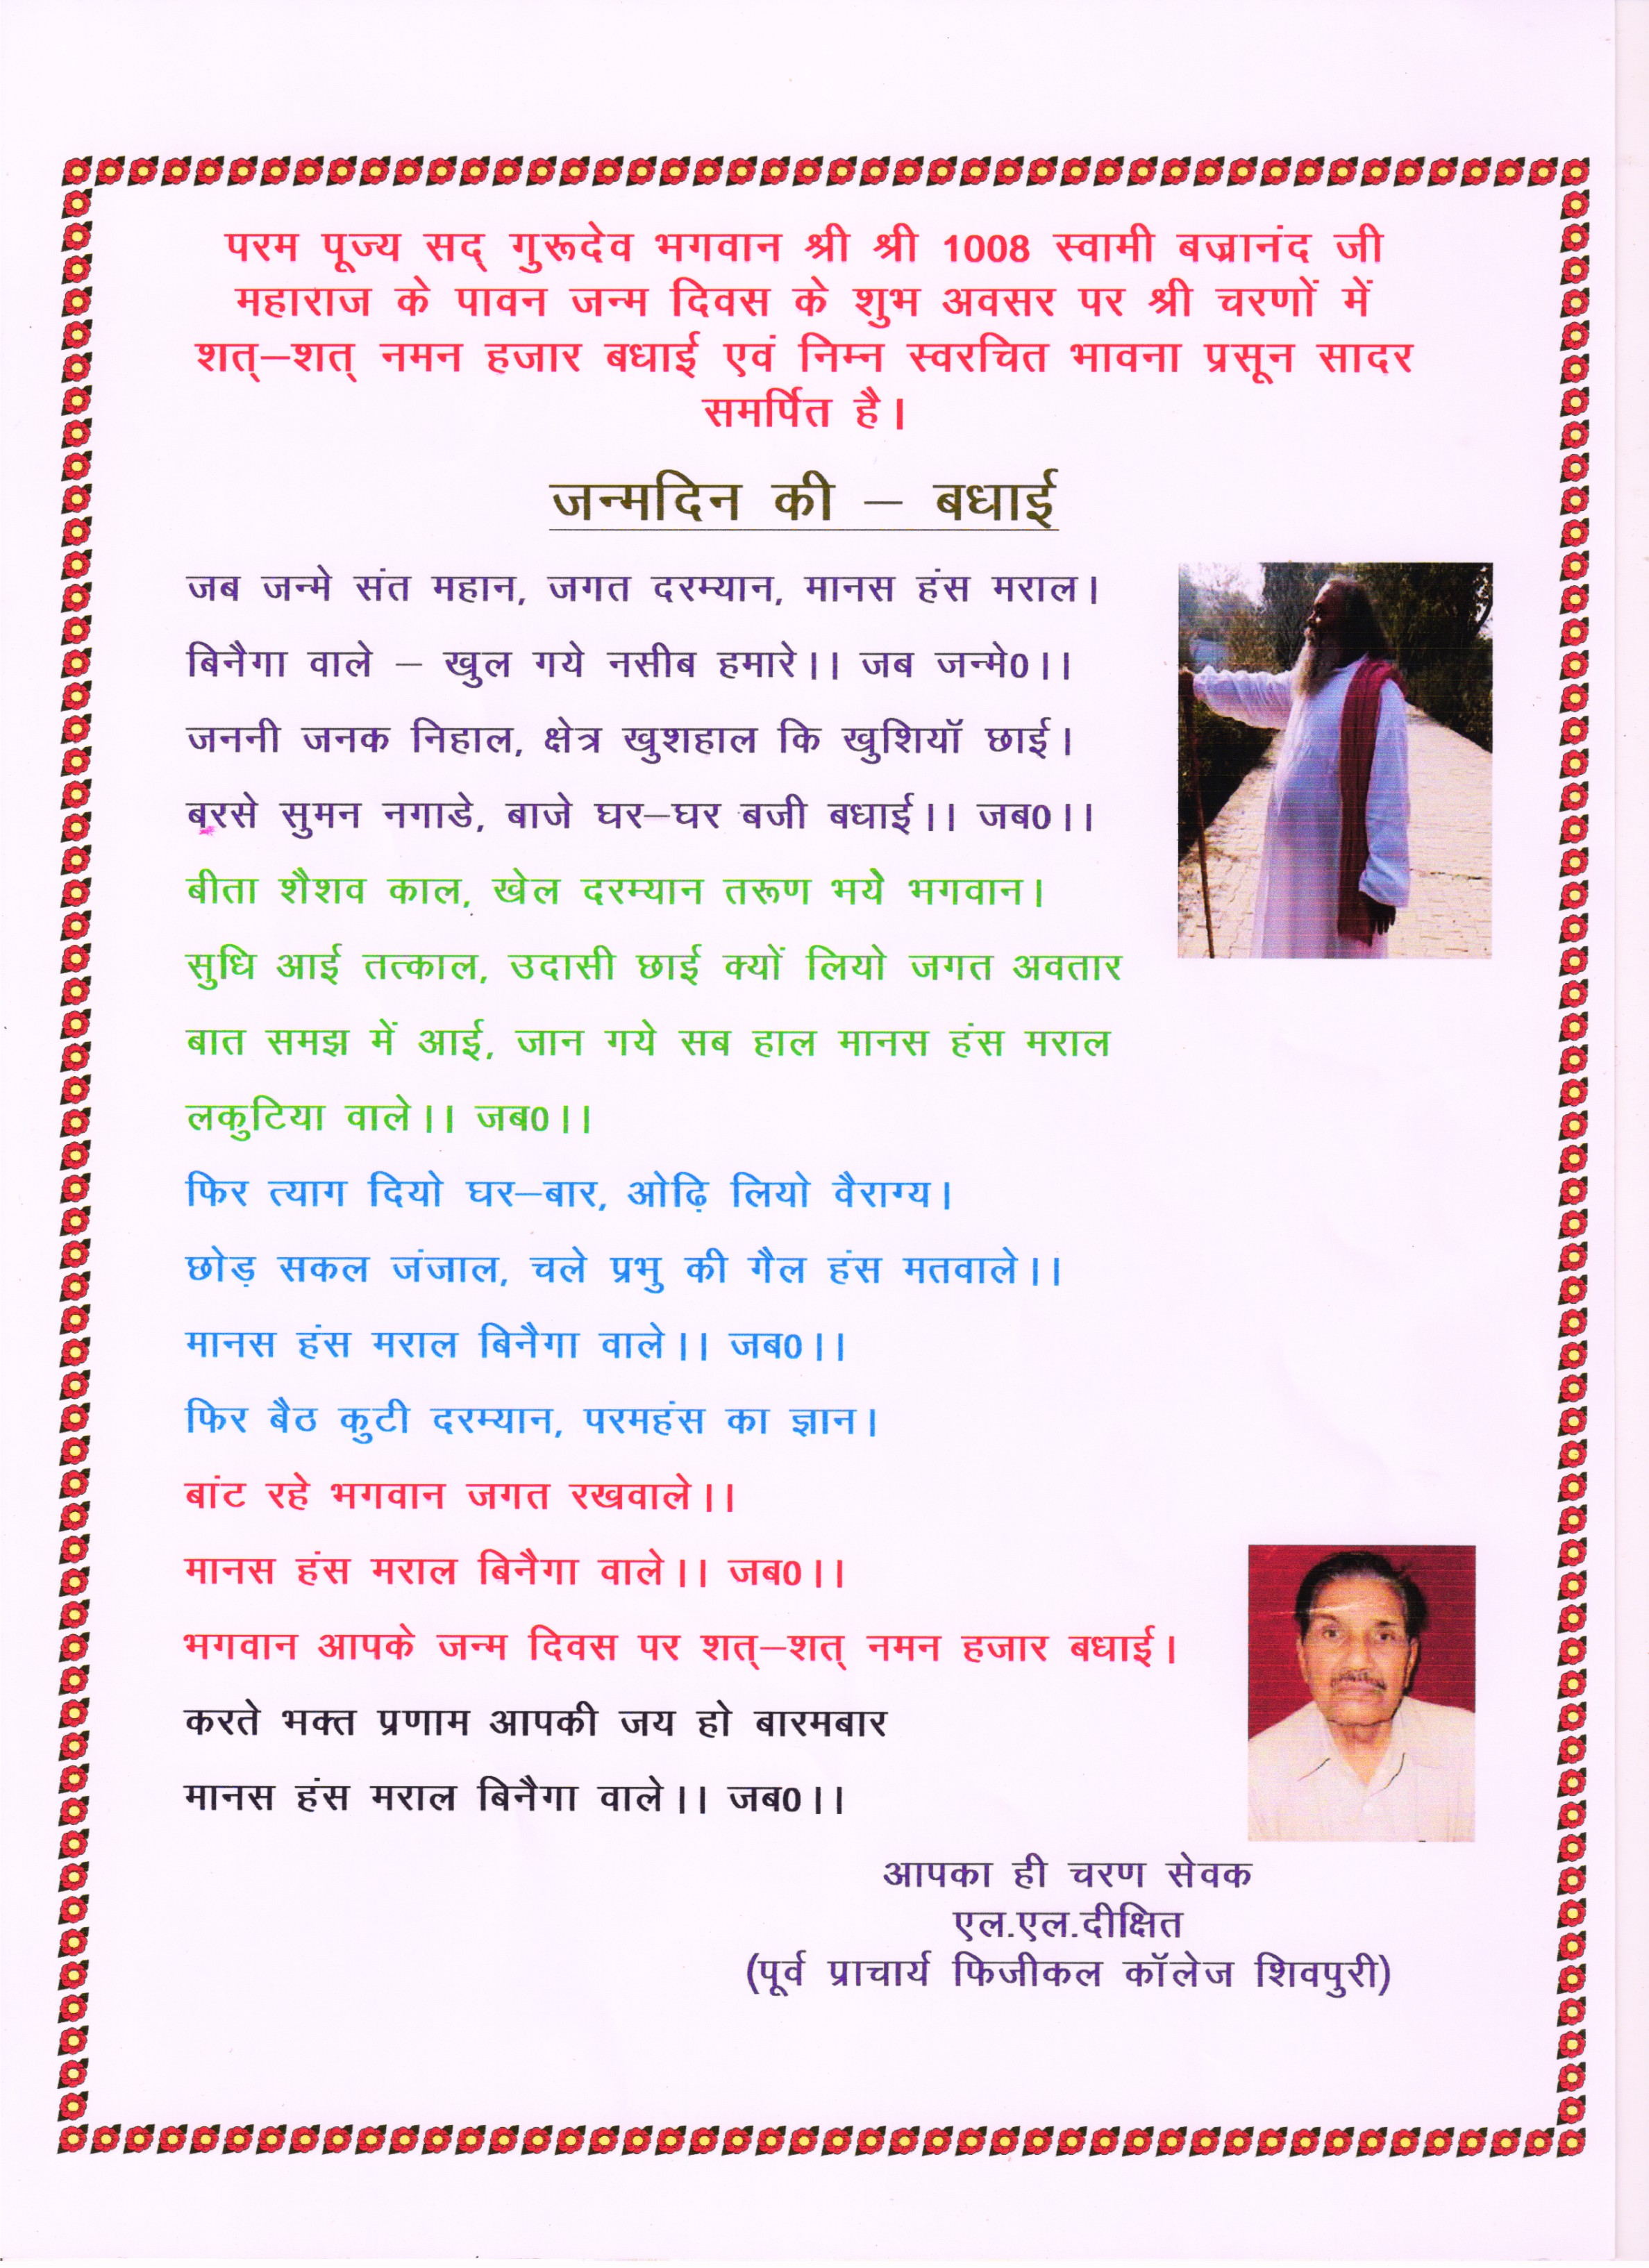 परम पूज्य सद् गुरूदेव भगवान श्री श्री 1008 स्वामी बज्रानंद जी
महाराज के पावन जन्म दिवस के शुभ अवसर पर श्री चरणों में
शत्–शत् नमन हजार बधाई एवं निम्न स्वरचित भावना प्रसून सादर
समर्पित है।
जन्मदिन की – बधाई
जब जन्मे संत महान, जगत दरम्यान, मानस हंस मराल।
बिनैगा वाले – खुल गये नसीब हमारे।। जब जन्मे0।।
जननी जनक निहाल, क्षेत्र खुशहाल कि खुशियॉ छाई।
बरसे सुमन नगाडे, बाजे घर–घर बजी बधाई।। जब0।।
बीता शैशव काल, खेल दरम्यान तरूण भये भगवान।
सुधि आई तत्काल, उदासी छाई क्यों लियो जगत अवतार
बात समझ में आई, जान गये सब हाल मानस हंस मराल
लकुटिया वाले।। जब0।।
फिर त्याग दियो घर–बार, ओढ़ि लियो वैराग्य।
छोड़ सकल जंजाल, चले प्रभु की गैल हंस मतवाले।।
मानस हंस मराल बिनैगा वाले।। जब0।।
फिर बैठ कुटी दरम्यान, परमहंस का ज्ञान।
बांट रहे भगवान जगत रखवाले।।
मानस हंस मराल बिनैगा वाले।। जब0।।
भगवान आपके जन्म दिवस पर शत्–शत् नमन हजार बधाई।
करते भक्त प्रणाम आपकी जय हो बारमबार
मानस हंस मराल बिनैगा वाले।। जब0।।
आपका ही चरण सेवक
एल.एल.दीक्षित
(पूर्व प्राचार्य फिजीकल कॉलेज शिवपुरी)